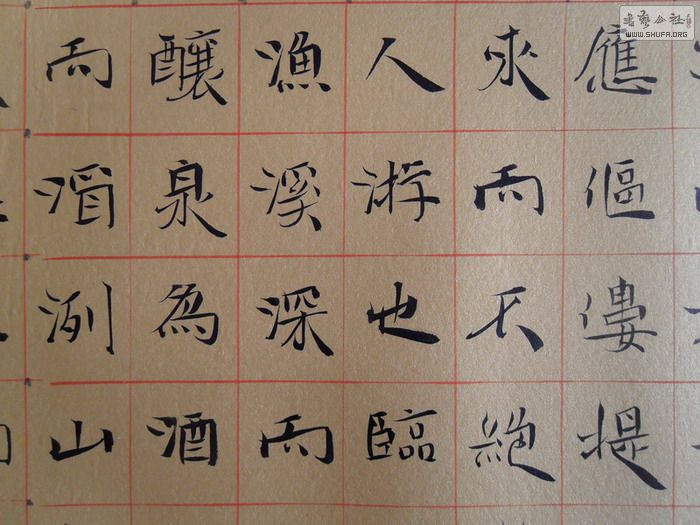 應傴僂提
來而不絶
人游也臨
漁溪深而
釀泉為酒
而酒洌山
書藝公社
WWW.SHUFA.ORG